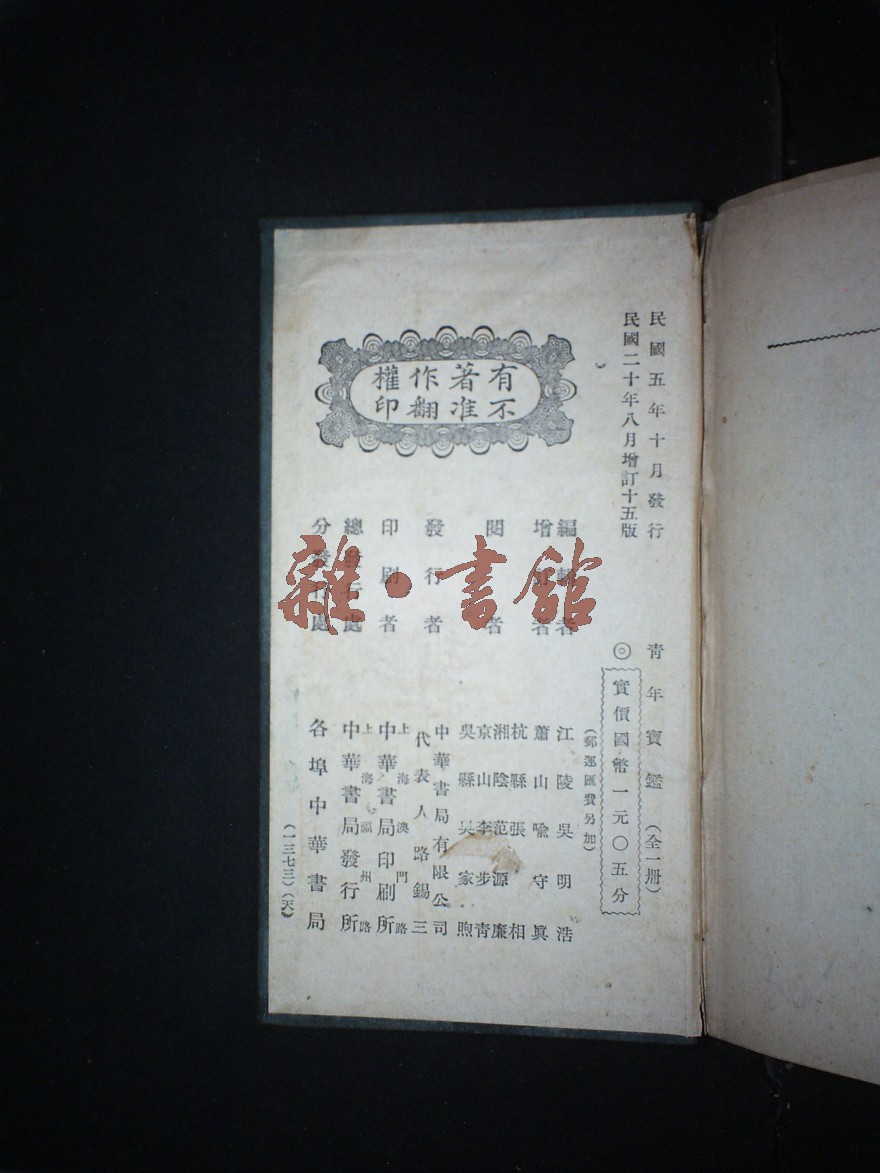 民國五年十月發行
民國二十年八月增訂十五版
青年寶鑑（全一册）
◎實價國幣一元〇五分
（郵運匯費另加）
有著作權
不准翻印
編輯者 江陵吳明浩
增訂者 蕭山喩守眞
閱者 杭縣張相
湘陰范源廉
京山李步靑
吳縣吳家煦
發行者 中華書局有限公司
代表人路錫三
印刷者 上海澳門路
中華書局印刷所
總發行處 上海福州路
中華書局發行所
分發行處 各埠中華書局
（一三七三）（天）
雜·書館